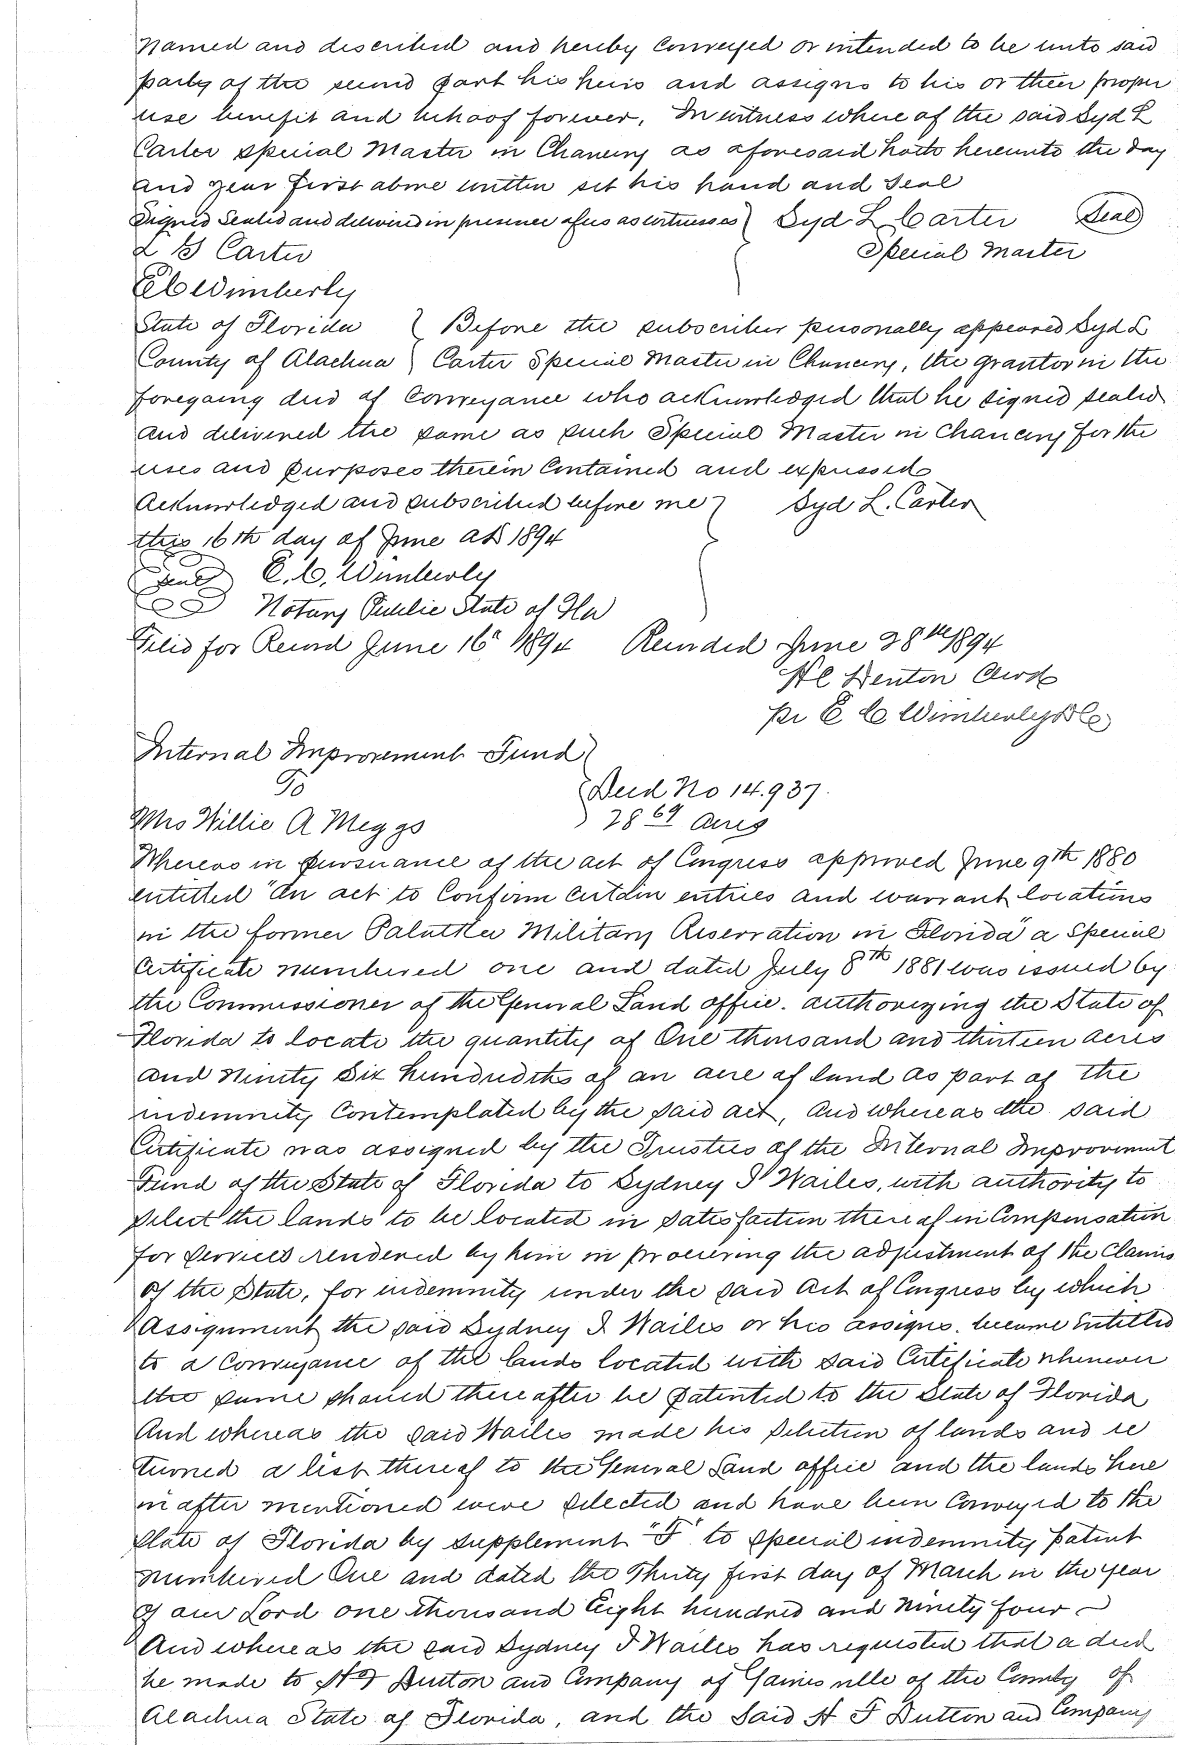 named and described and hereby conveyed or intended to be unto said
party of the second part his heirs and assigns to his or their proper
use benefit and behoof forever, In witness where of the said Syd L
Carter special Master in Chancery as aforesaid hath hereunto the day
and year first above written set his hand and seal
Signed Sealed and delivered in presence of us as witnesses } Syd L Carter Seal
L G Carter Special Master
E C Wimberly
State of Florida } Before the subscriber personally appeared Syd L
County of Alachua } Carter Special Master in Chancery, the grantor in the
foregoing deed of conveyance who acknowledged that he signed sealed
and delivered the same as such Special Master in Chancery for the
uses and purposes therein contained and expressed
Acknowledged and subscribed before me } Syd L. Carter
this 16th day of June AD 1894
Seal E. C. Wimberly
Notary Public State of Fla
Filed for Record June 16th 1894 Recorded June 28th 1894
H C Denton Clerk
pr E C Wimberly D C
Internal Improvement Fund }
To } Deed No 14.937.
Mrs Willie A Meggs } 28 69 acres
Whereas in pursuance of the act of Congress approved June 9th 1880
entitled "An act to Confirm certain entries and warrant locations
in the former Palatka Military Reservation in Florida" a Special
Certificate numbered one and dated July 8th 1881 was issued by
the Commissioner of the General Land office. authorizing the State of
Florida to locate the quantity of One thousand and thirteen acres
and ninety six hundredths of an acre of land as part of the
indemnity contemplated by the said act, and whereas the said
Certificate was assigned by the Trustees of the Internal Improvement
Fund of the State of Florida to Sydney I Wailes, with authority to
select the lands to be located in satisfaction thereof in Compensation
for services rendered by him in procuring the adjustment of the Claims
of the State, for indemnity under the said Act of Congress by which
Assignment the said Sydney I Wailes or his assigns. became entitled
to a Conveyance of the lands located with said Certificate whenever
the same should thereafter be patented to the State of Florida
And whereas the said Wailes made his selection of lands and re
turned a list thereof to the General Land office and the lands here
in after mentioned were selected and have been Conveyed to the
State of Florida by supplement "F" to special indemnity patent
numbered One and dated the Thirty first day of March in the year
of our Lord one thousand Eight hundred and Ninety four
And whereas the said Sydney I Wailes has requested that a deed
be made to H F Dutton and Company of Gainesville of the County of
Alachua State of Florida, and the Said H F Dutton and Company